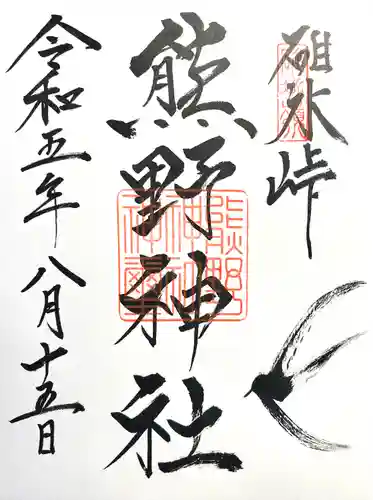 碓氷峠
熊野神社
令和五年 八月十五日